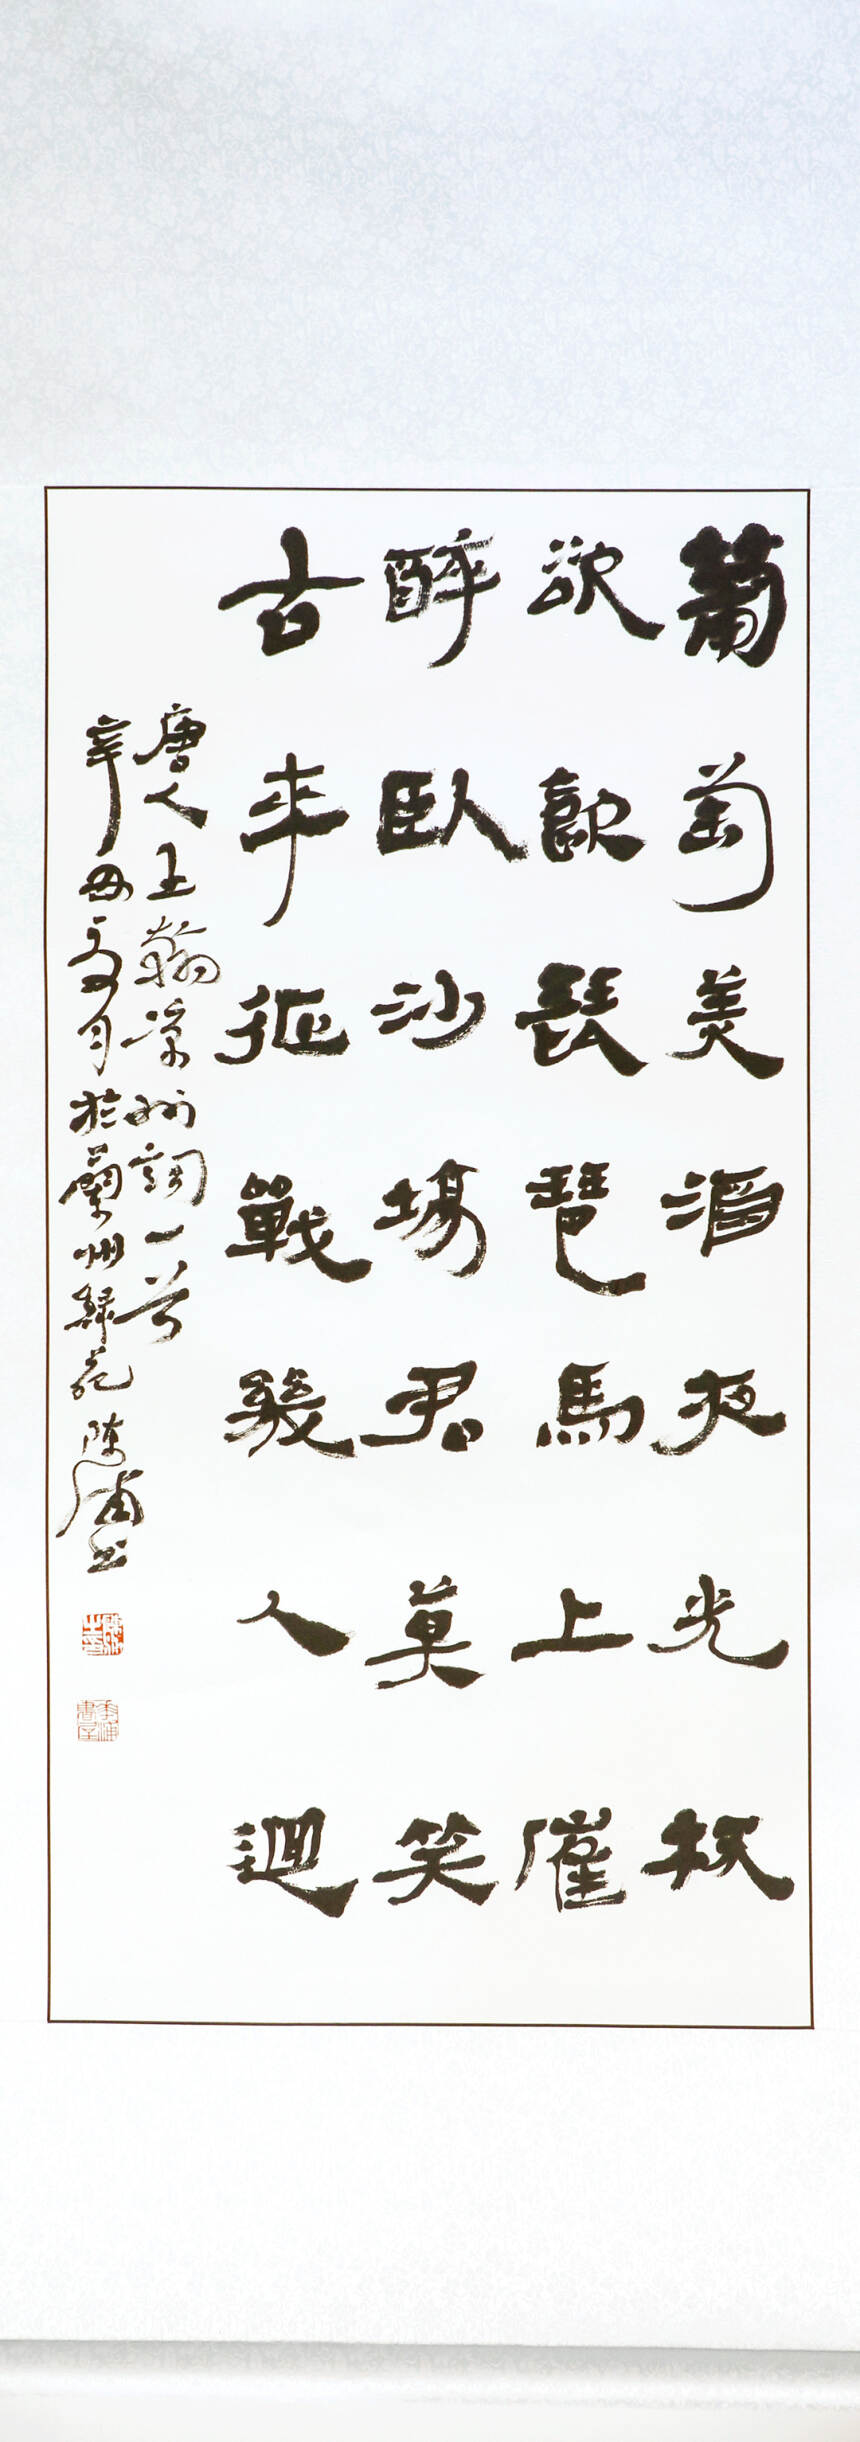 葡萄美酒夜光杯
欲飲琵琶馬上催
醉臥沙場君莫笑
古來征戰幾人迴
唐人王翰涼州詞一首
辛丑夏月於蘭州